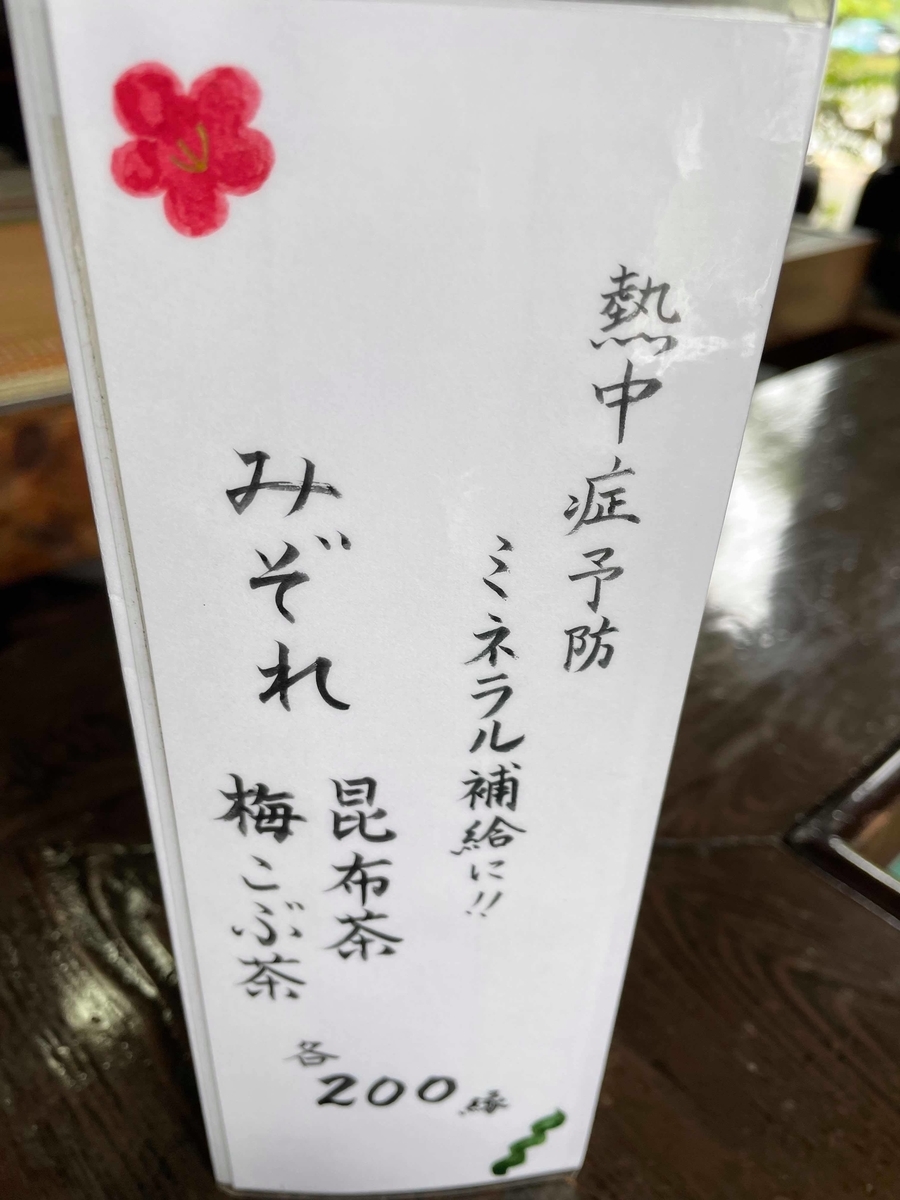 熱中症予防
ミネラル補給に!!
みぞれ
昆布茶
梅こぶ茶
各
200縁